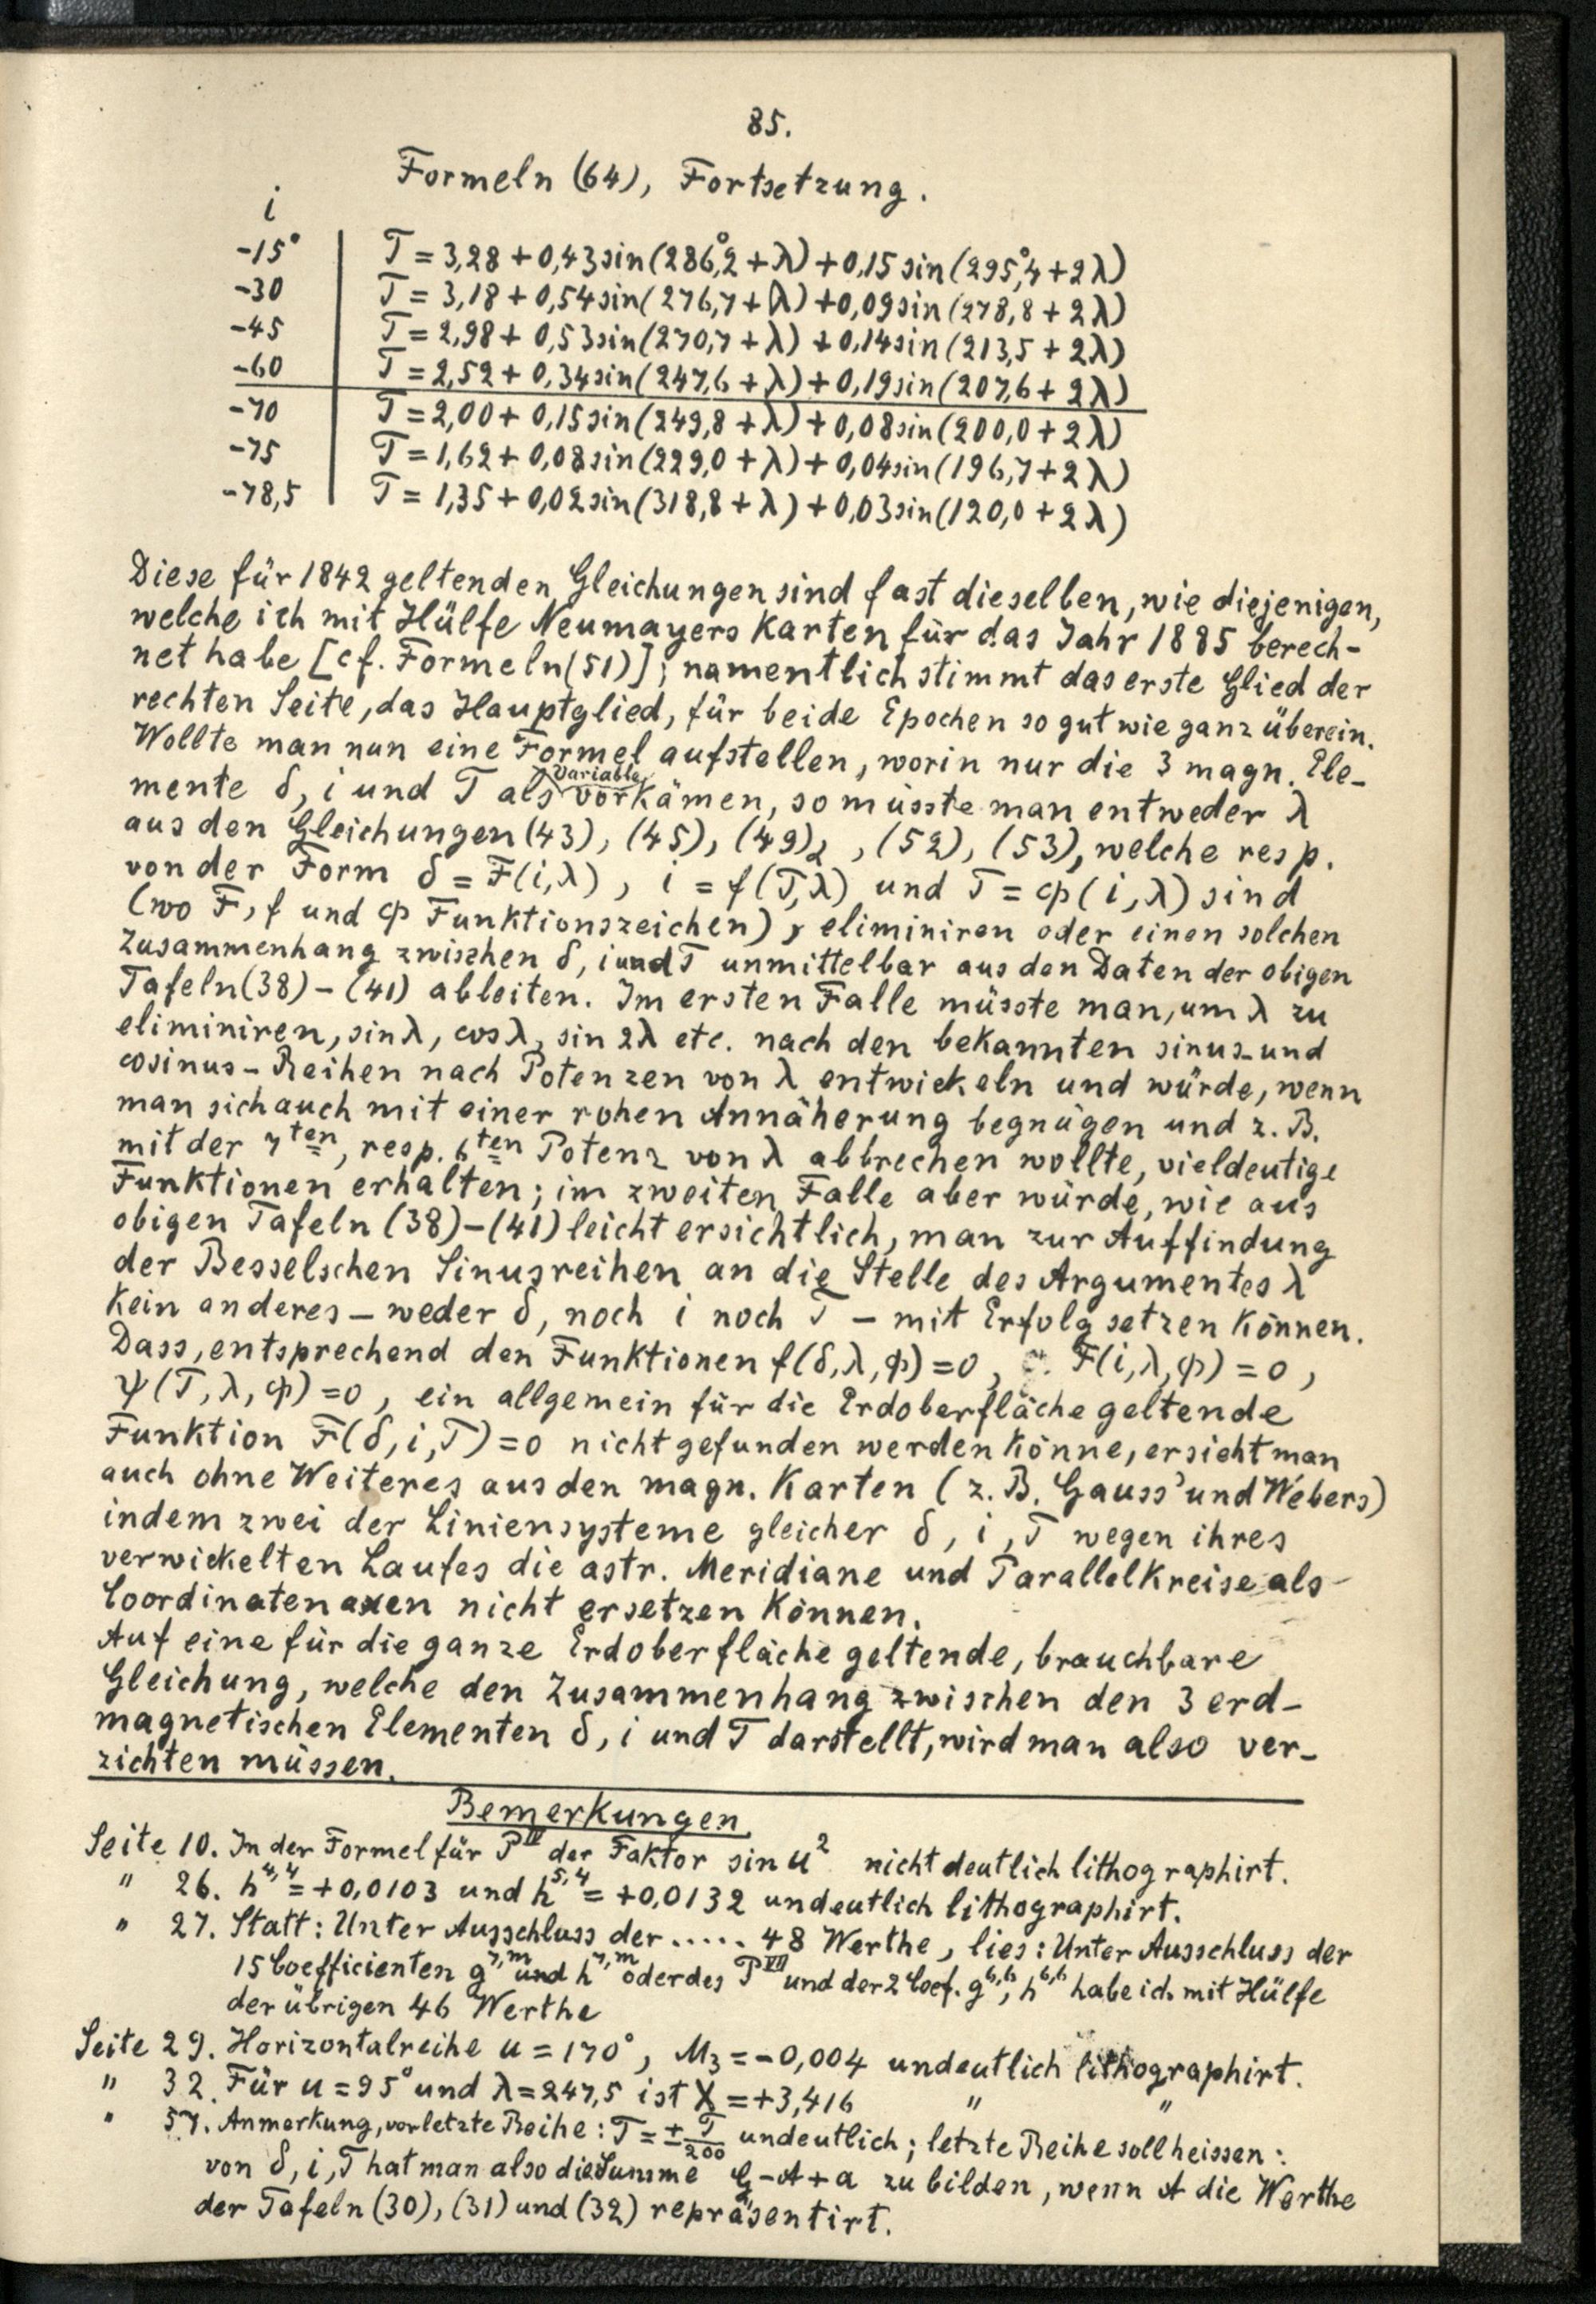 85.
Formeln (64), Fortsetzung.
i
-15° T = 3,28 + 0,43 sin(286°,2 + λ) + 0,15 sin(295°,4 + 2λ)
-30 T = 3,18 + 0,54 sin(276,7 + λ) + 0,09 sin(278,8 + 2λ)
-45 T = 2,98 + 0,53 sin(270,7 + λ) + 0,14 sin(213,5 + 2λ)
-60 T = 2,52 + 0,34 sin(247,6 + λ) + 0,19 sin(207,6 + 2λ)
-70 T = 2,00 + 0,15 sin(249,8 + λ) + 0,08 sin(200,0 + 2λ)
-75 T = 1,62 + 0,08 sin(229,0 + λ) + 0,04 sin(196,7 + 2λ)
-78,5 T = 1,35 + 0,02 sin(318,8 + λ) + 0,03 sin(120,0 + 2λ)
Diese für 1842 geltenden Gleichungen sind fast dieselben, wie diejenigen,
welche ich mit Hülfe Neumayers Karten für das Jahr 1885 berech-
net habe [cf. Formeln (51)]; namentlich stimmt das erste Glied der
rechten Seite, das Hauptglied, für beide Epochen so gut wie ganz überein.
Wollte man nun eine Formel aufstellen, worin nur die 3 magn. Ele-
mente δ, i und T als Variable vorkämen, so müsste man entweder λ
aus den Gleichungen (43), (45), (49)₂, (52), (53), welche resp.
von der Form δ = F(i,λ), i = f(T,λ) und T = φ(i,λ) sind
(wo F, f und φ Funktionszeichen), eliminiren oder einen solchen
Zusammenhang zwischen δ, i und T unmittelbar aus den Daten der obigen
Tafeln (38) - (41) ableiten. Im ersten Falle müsste man, um λ zu
eliminiren, sin λ, cos λ, sin 2λ etc. nach den bekannten sinus- und
cosinus-Reihen nach Potenzen von λ entwickeln und würde, wenn
man sich auch mit einer rohen Annäherung begnügen und z. B.
mit der 7ten, resp. 6ten Potenz von λ abbrechen wollte, vieldeutige
Funktionen erhalten; im zweiten Falle aber würde, wie aus
obigen Tafeln (38) - (41) leicht ersichtlich, man zur Auffindung
der Besselschen Sinusreihen an die Stelle des Argumentes λ
kein anderes - weder δ, noch i noch T - mit Erfolg setzen können.
Dass, entsprechend den Funktionen f(δ,λ,φ) = 0, F(i,λ,φ) = 0,
ψ(T,λ,φ) = 0, ein allgemein für die Erdoberfläche geltende
Funktion F(δ,i,T) = 0 nicht gefunden werden könne, ersieht man
auch ohne Weiteres aus den magn. Karten (z. B. Gauss' und Webers)
indem zwei der Liniensysteme gleicher δ, i, T wegen ihres
verwickelten Laufes die astr. Meridiane und Parallelkreise als
Coordinatenaxen nicht ersetzen können.
Auf eine für die ganze Erdoberfläche geltende, brauchbare
Gleichung, welche den Zusammenhang zwischen den 3 erd-
magnetischen Elementen δ, i und T darstellt, wird man also ver-
zichten müssen.
Bemerkungen.
Seite 10. In der Formel für P^IV der Faktor sin u² nicht deutlich lithographirt.
" 26. h^4,4 = +0,0103 und h^5,4 = +0,0132 undeutlich lithographirt.
" 27. Statt: Unter Ausschluss der ..... 48 Werthe, lies: Unter Ausschluss der
15 Coefficienten g^7,m und h^7,m oder des P^VII und der 2 Coef. g^6,6, h^6,6 habe ich mit Hülfe
der übrigen 46 Werthe
Seite 29. Horizontalreihe u = 170°, M₃ = -0,004 undeutlich lithographirt.
" 32. Für u = 95° und λ = 247,5 ist X = +3,416 " "
" 57. Anmerkung, vorletzte Reihe: T = ± T/200 undeutlich; letzte Reihe soll heissen:
von δ, i, T hat man also die Summe G - A + a zu bilden, wenn A die Werthe
der Tafeln (30), (31) und (32) repräsentirt.